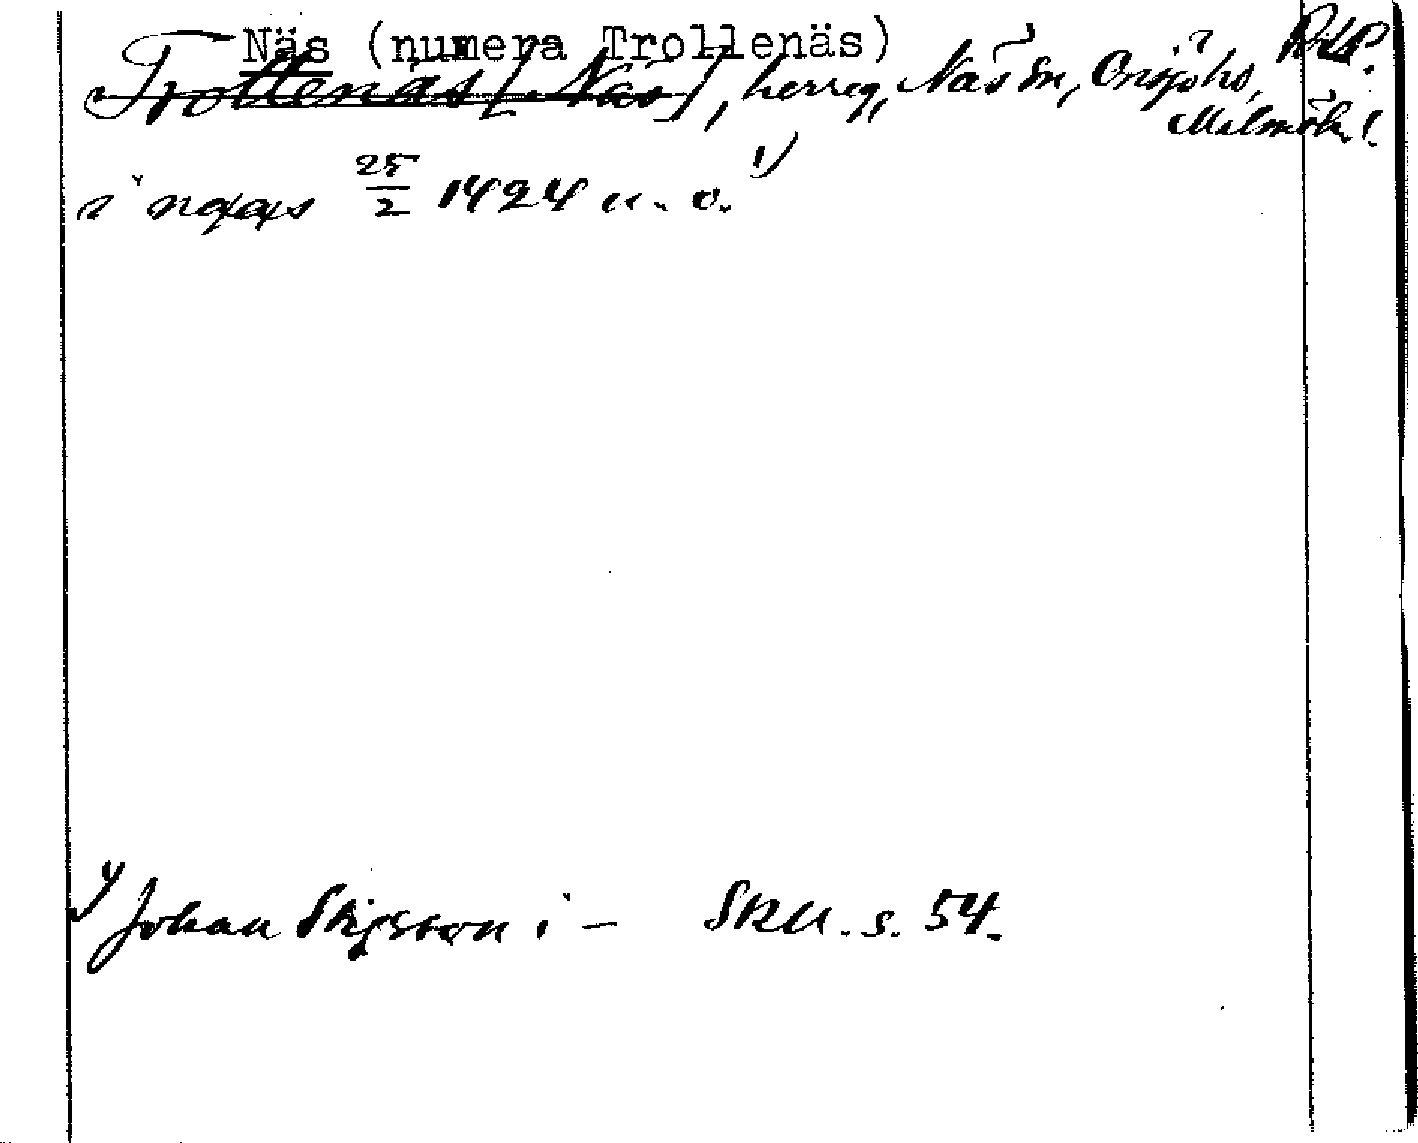 Näs (numera Trollenäs)
Trollenäs [Näs], herreg, Näs sn, Onsjö hd,
Malmöh. l.
i næs 25/2 1424 u. o. 1)
1) Johan Stigsson i – SRU. s. 54.